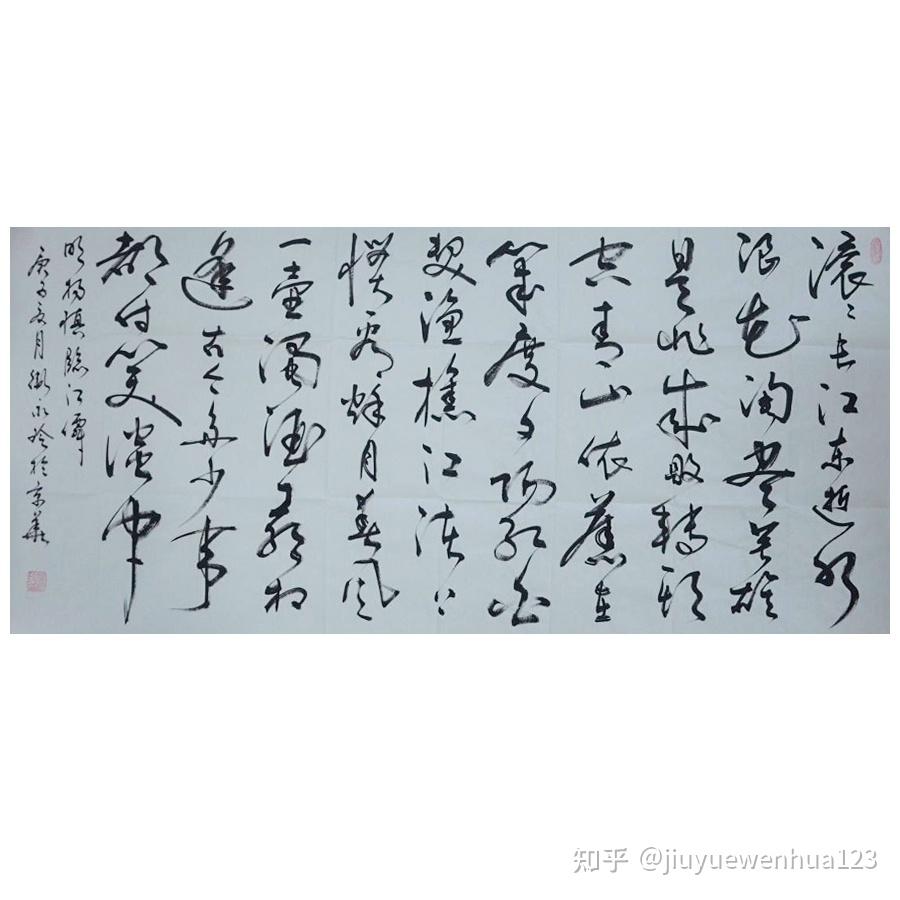 滚滚长江东逝水
浪花淘尽英雄
是非成敗轉頭
空青山依舊在
幾度夕陽紅白
髮渔樵江渚上
惯看秋月春風
一壺濁酒喜相
逢古今多少事
都付笑談中
明杨慎臨江僊
庚子夏月 於京華
知乎 @jiuyuewenhua123